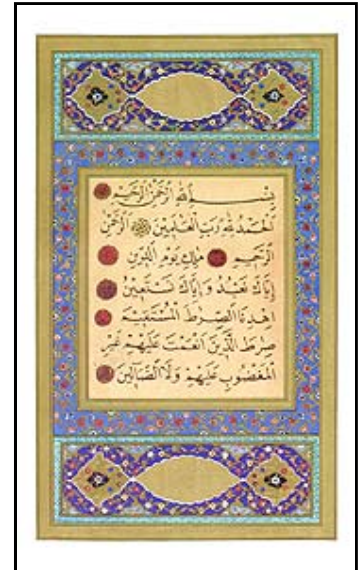 بِسْمِ اللهِ الرَّحْمٰنِ الرَّحِيمِ
اَلْحَمْدُ لِلّٰهِ رَبِّ الْعَالَمِينَ الرَّحْمٰنِ
الرَّحِيمِ مَالِكِ يَوْمِ الدِّينِ
اِيَّاكَ نَعْبُدُ وَاِيَّاكَ نَسْتَعِينُ
اِهْدِنَا الصِّرَاطَ الْمُسْتَقِيمَ
صِرَاطَ الَّذِينَ اَنْعَمْتَ عَلَيْهِمْ غَيْرِ
الْمَغْضُوبِ عَلَيْهِمْ وَلَا الضَّالِّينَ